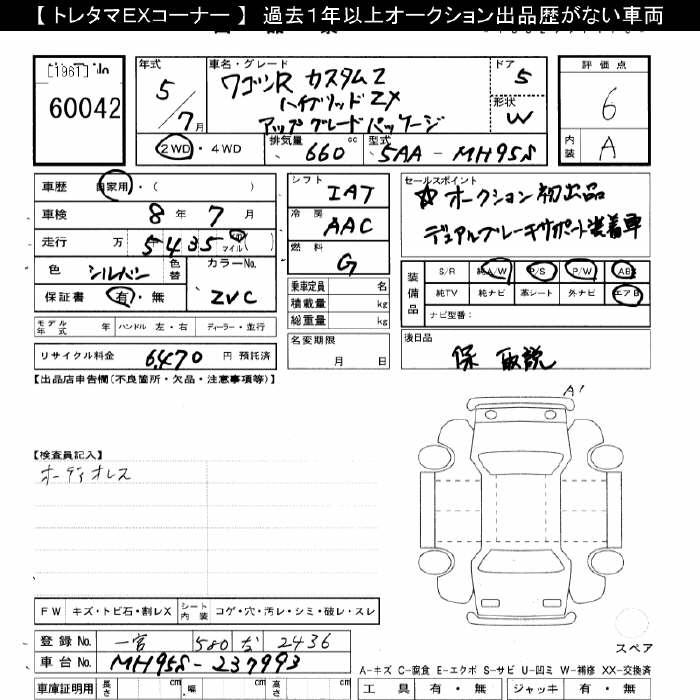 【 トレタマEXコーナー 】 過去1年以上オークション出品歴がない車両
[1961]
60042
年式
5/7月
車名・グレード
ワゴンR カスタムZ
ハイブリッド ZX
アップグレードパッケージ
ドア
5
形状
W
評価点
6
内装
A
2WD・4WD
排気量
660 cc
型式
5AA-MH95S
車歴 自家用・( )
車検 8年 7月
走行 万 5435 マイル( )
色 シルバー
色替
カラーNo.
ZVC
保証書 有・無
モデル年式 年 ハンドル 左・右 ディーラー・並行
リサイクル料金 6,470 円 預託済
シフト
IAT
冷房
AAC
燃料
G
乗車定員 名
積載量 kg
総重量 kg
名変期限
月 日
セールスポイント
☆オークション初出品
デュアルブレーキサポート装着車
装備品
S/R 純A/W P/S P/W AB
純TV 純ナビ 革シート 外ナビ エアB
ナビ型番:
後日品
保 取説
【出品店申告欄(不良箇所・欠品・注意事項等)】
A1
【検査員記入】
オーディオレス
FW キズ・トビ石・割レX シート内装 コゲ・穴・汚レ・シミ・破レ・スレ
登録No. 一宮 580 な 2436
車台No. MH95S-237993
車庫証明用 長さ cm 幅 cm 高さ cm
スペア
A-キズ C-腐食 E-エクボ S-サビ U-凹ミ W-補修 XX-交換済
工具 有・無 ジャッキ 有・無